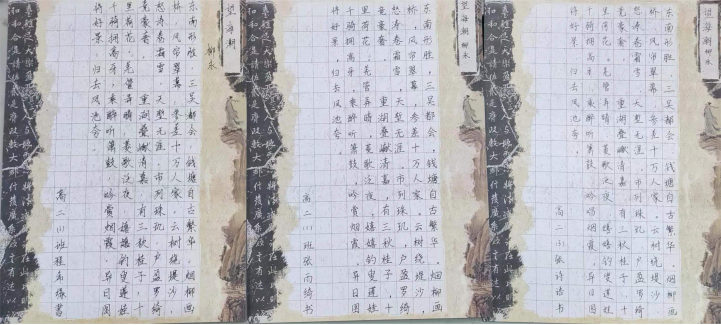 望海潮
柳永
东南形胜，三吴都会，钱塘自古繁华。烟柳画
桥，风帘翠幕，参差十万人家。云树绕堤沙，
怒涛卷霜雪，天堑无涯。市列珠玑，户盈罗绮
竞豪奢。 重湖叠巘清嘉，有三秋桂子，十
里荷花。羌管弄晴，菱歌泛夜，嬉嬉钓叟莲娃
千骑拥高牙，乘醉听箫鼓，吟赏烟霞。异日图
将好景，归去凤池夸。
高二(一)班程书
望海潮 柳永
东南形胜，三吴都会，钱塘自古繁华，烟柳画
桥，风帘翠幕，参差十万人家。云树绕堤沙，
怒涛卷霜雪，天堑无涯。市列珠玑，户盈罗绮
竞豪奢。 重湖叠巘清嘉，有三秋桂子，十
里荷花。羌管弄晴，菱歌泛夜，嬉嬉钓叟莲娃
千骑拥高牙，乘醉听箫鼓，吟赏烟霞。异日图
将好景，归去凤池夸。
高二(一)班张雨绮书
望海潮 柳永
东南形胜，三吴都会，钱塘自古繁华，烟柳画
桥，风帘翠幕，参差十万人家。云树绕堤沙，
怒涛卷霜雪，天堑无涯。市列珠玑，户盈罗绮
竞豪奢。 重湖叠巘清嘉，有三秋桂子，十
里荷花。羌管弄晴，菱歌泛夜，嬉嬉钓叟莲娃
千骑拥高牙，乘醉听箫鼓，吟赏烟霞。异日图
将好景，归去凤池夸。
高二(一)张诗语书